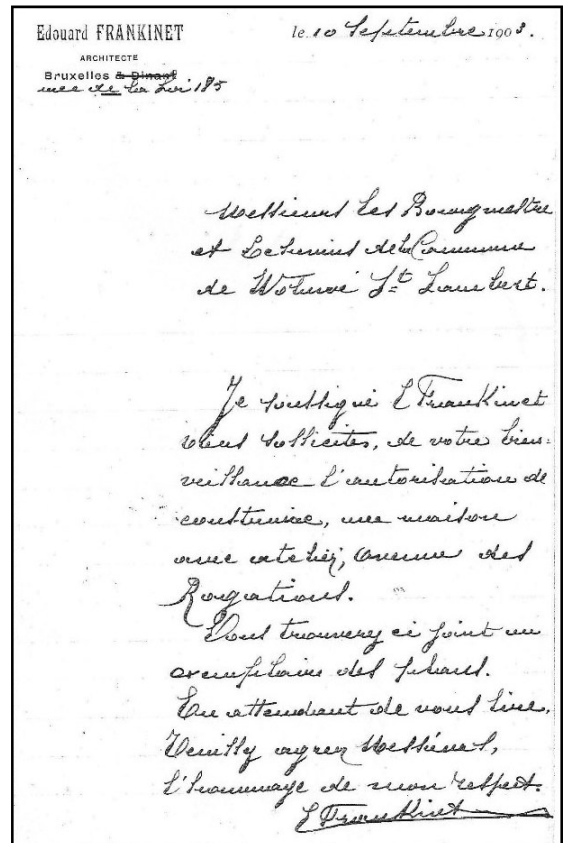 Edouard FRANKINET
le 10 Septembre 1903.
ARCHITECTE
Bruxelles & Dinant
rue de la Loi 185
Messieurs les Bourgmestre
et Echevins de la Commune
de Woluwé St Lambert.
Je soussigné E Frankinet
viens solliciter, de votre bien=
veillance l'autorisation de
construire, une maison
avec atelier, avenue des
Rogations.
Vous trouverez ci joint un
exemplaire des plans.
En attendant de vous lire,
Veuillez agréer Messieurs,
l'hommage de mon respect.
E Frankinet